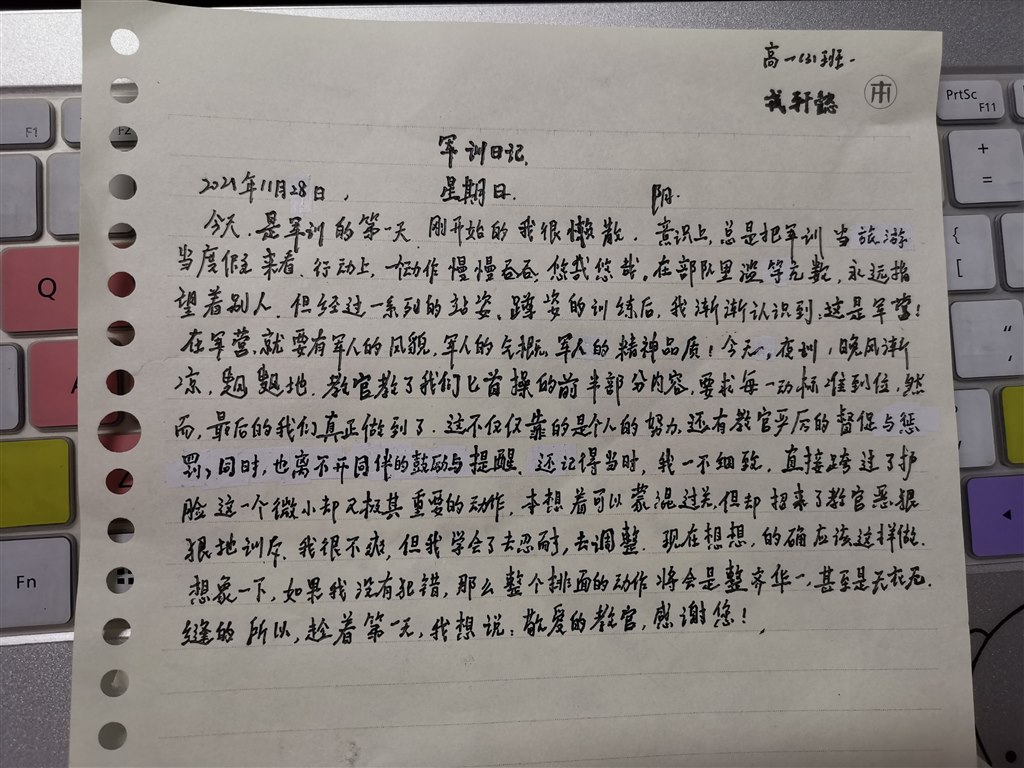 PrtSc
F11
F1
F2
+
=
{
[
Q
"
'
A
Fn
高一(3)班.
轩懿
军训日记.
2021年11月28日, 星期日. 阴.
今天.是军训的第一天.刚开始的我很懒散.意识上,总是把军训当旅游
当度假来看.行动上,一动作慢慢吞吞,悠哉悠哉.在部队里滥竽充数,永远指
望着别人.但经过一系列的站姿、蹲姿的训练后,我渐渐认识到:这是军营!
在军营,就要有军人的风貌,军人的气概,军人的精神品质!今天,夜训,晚风渐
凉,飕飕地.教官教了我们匕首操的前半部分内容,要求每一动标准到位,然
而,最后的我们真正做到了.这不仅仅靠的是个人的努力.还有教官严厉的督促与惩
罚,同时,也离不开同伴的鼓励与提醒、还记得当时,我一不细致,直接跨过了护
脸这一个微小却又极其重要的动作,本想着可以蒙混过关,但却招来了教官恶狠
狠地训斥.我很不爽,但我学会了去忍耐,去调整.现在想想,的确应该这样做.
想象一下,如果我没有犯错,那么整个排面的动作将会是整齐华一,甚至是天衣无
缝的.所以,趁着第一天,我想说:敬爱的教官,感谢您!